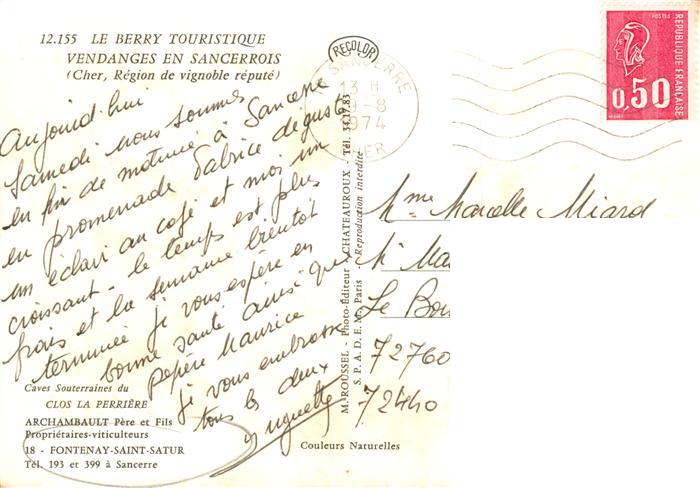 12.155 LE BERRY TOURISTIQUE
VENDANGES EN SANCERROIS
(Cher, Région de vignoble réputé)
Aujourd'hui
Samedi nous sommes
en fin de matinée à Sancerre
en promenade Fabrice déguste
un éclair au café et moi un
croissant - le temps est plus
frais et la semaine bientôt
terminée je vous espère en
bonne santé ainsi que
pépère Maurice
je vous embrasse
tous les deux
Huguette
Caves Souterraines du
CLOS LA PERRIÈRE
ARCHAMBAULT Père et Fils
Propriétaires-viticulteurs
18 - FONTENAY-SAINT-SATUR
Tél. 193 et 399 à Sancerre
RECOLOR
M. ROUSSEL - Photo-Éditeur - CHATEAUROUX - Tél. 34.19.85
S.P.A.D.E.M. Paris - Reproduction interdite
Couleurs Naturelles
SANCERRE
13 H
1974
CHER
POSTES
RÉPUBLIQUE FRANÇAISE
0,50
Mme Marcelle Miard
72760
72440